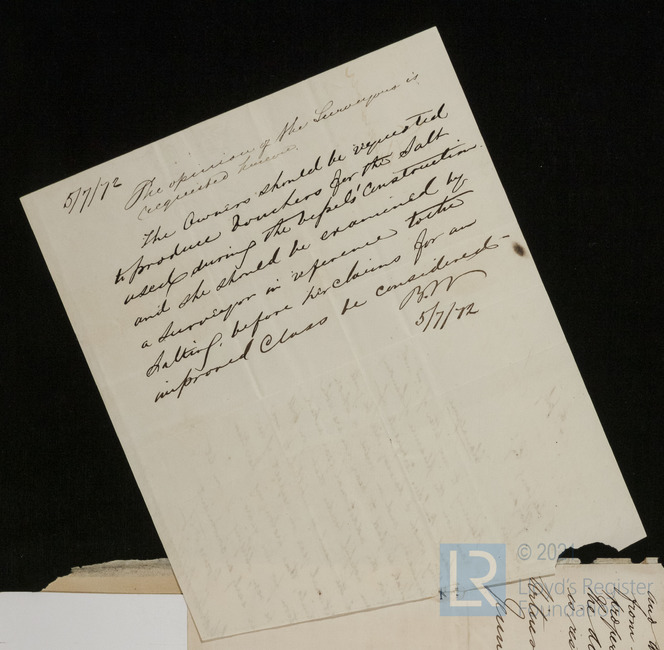 5/7/72 The opinion of the Surveyors is
requested hereon.
The Owners should be requested
to produce Vouchers for the Salt
used during the Vessels' Construction
and she should be examined by
a Surveyor in reference to the
Salting, before her claims for an
improved Class be considered -
5/7/72
LR
© 202
Lloyd's Register
Foundation
and to
from